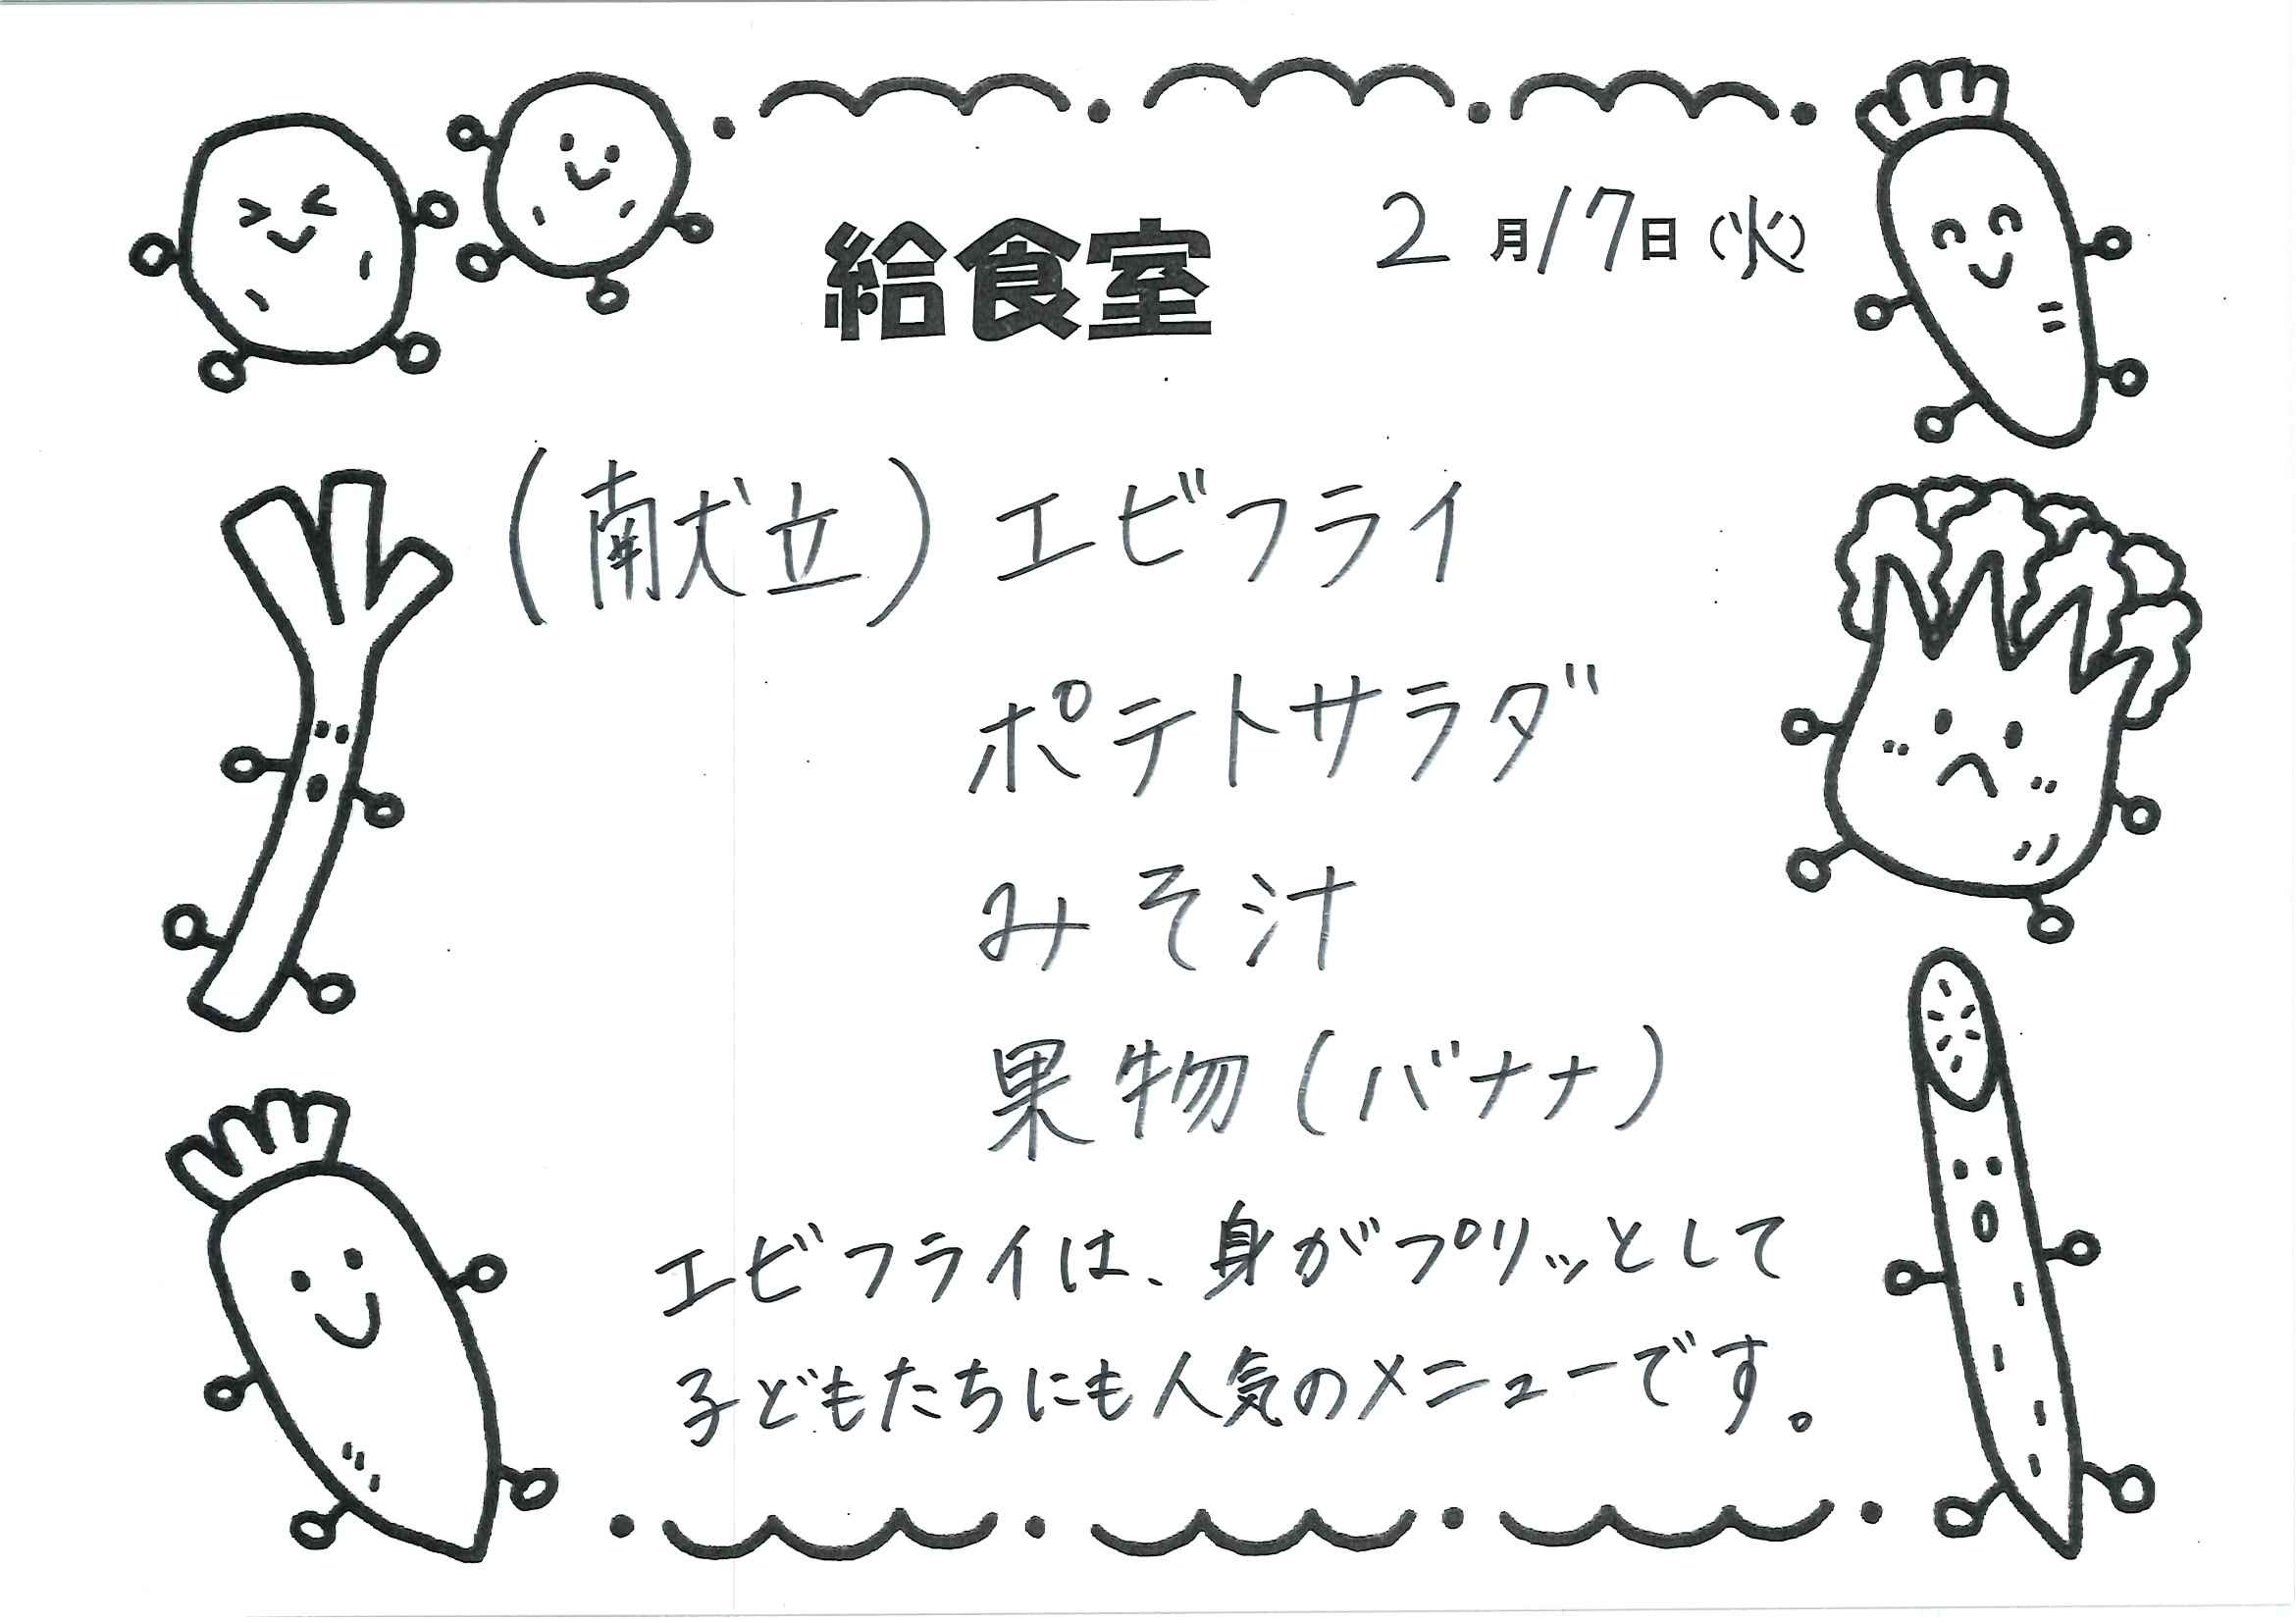 給食室 2月17日(火)
(献立) エビフライ
ポテトサラダ
みそ汁
果物(バナナ)
エビフライは、身がプリッとして
子どもたちにも人気のメニューです。